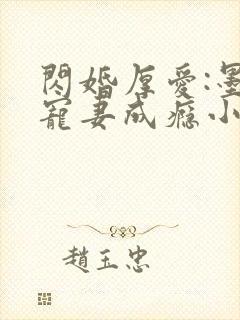 閃婚厚愛:墨
寵妻成癮小
趙玉忠